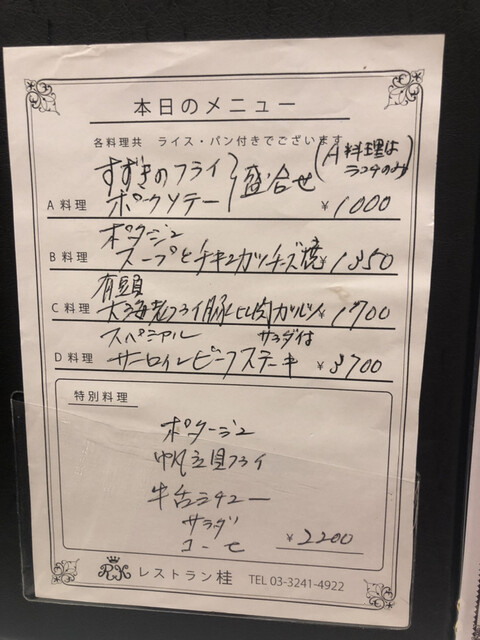 本日のメニュー
各料理共 ライス・パン付きでございます
(A料理はランチのみ)
すずきのフライ
A料理 ポークソテー 盛合せ ¥1000
ポタージュ
B料理 スープとチキンカツチーズ焼 ¥1350
有頭
C料理 大海老フライ豚ヒレ肉カツレツ ¥1700
スペシャル サラダ付
D料理 サーロインビーフステーキ ¥3700
特別料理
ポタージュ
帆立貝フライ
牛舌シチュー
サラダ
コーヒ ¥2200
RK レストラン桂 TEL 03-3241-4922